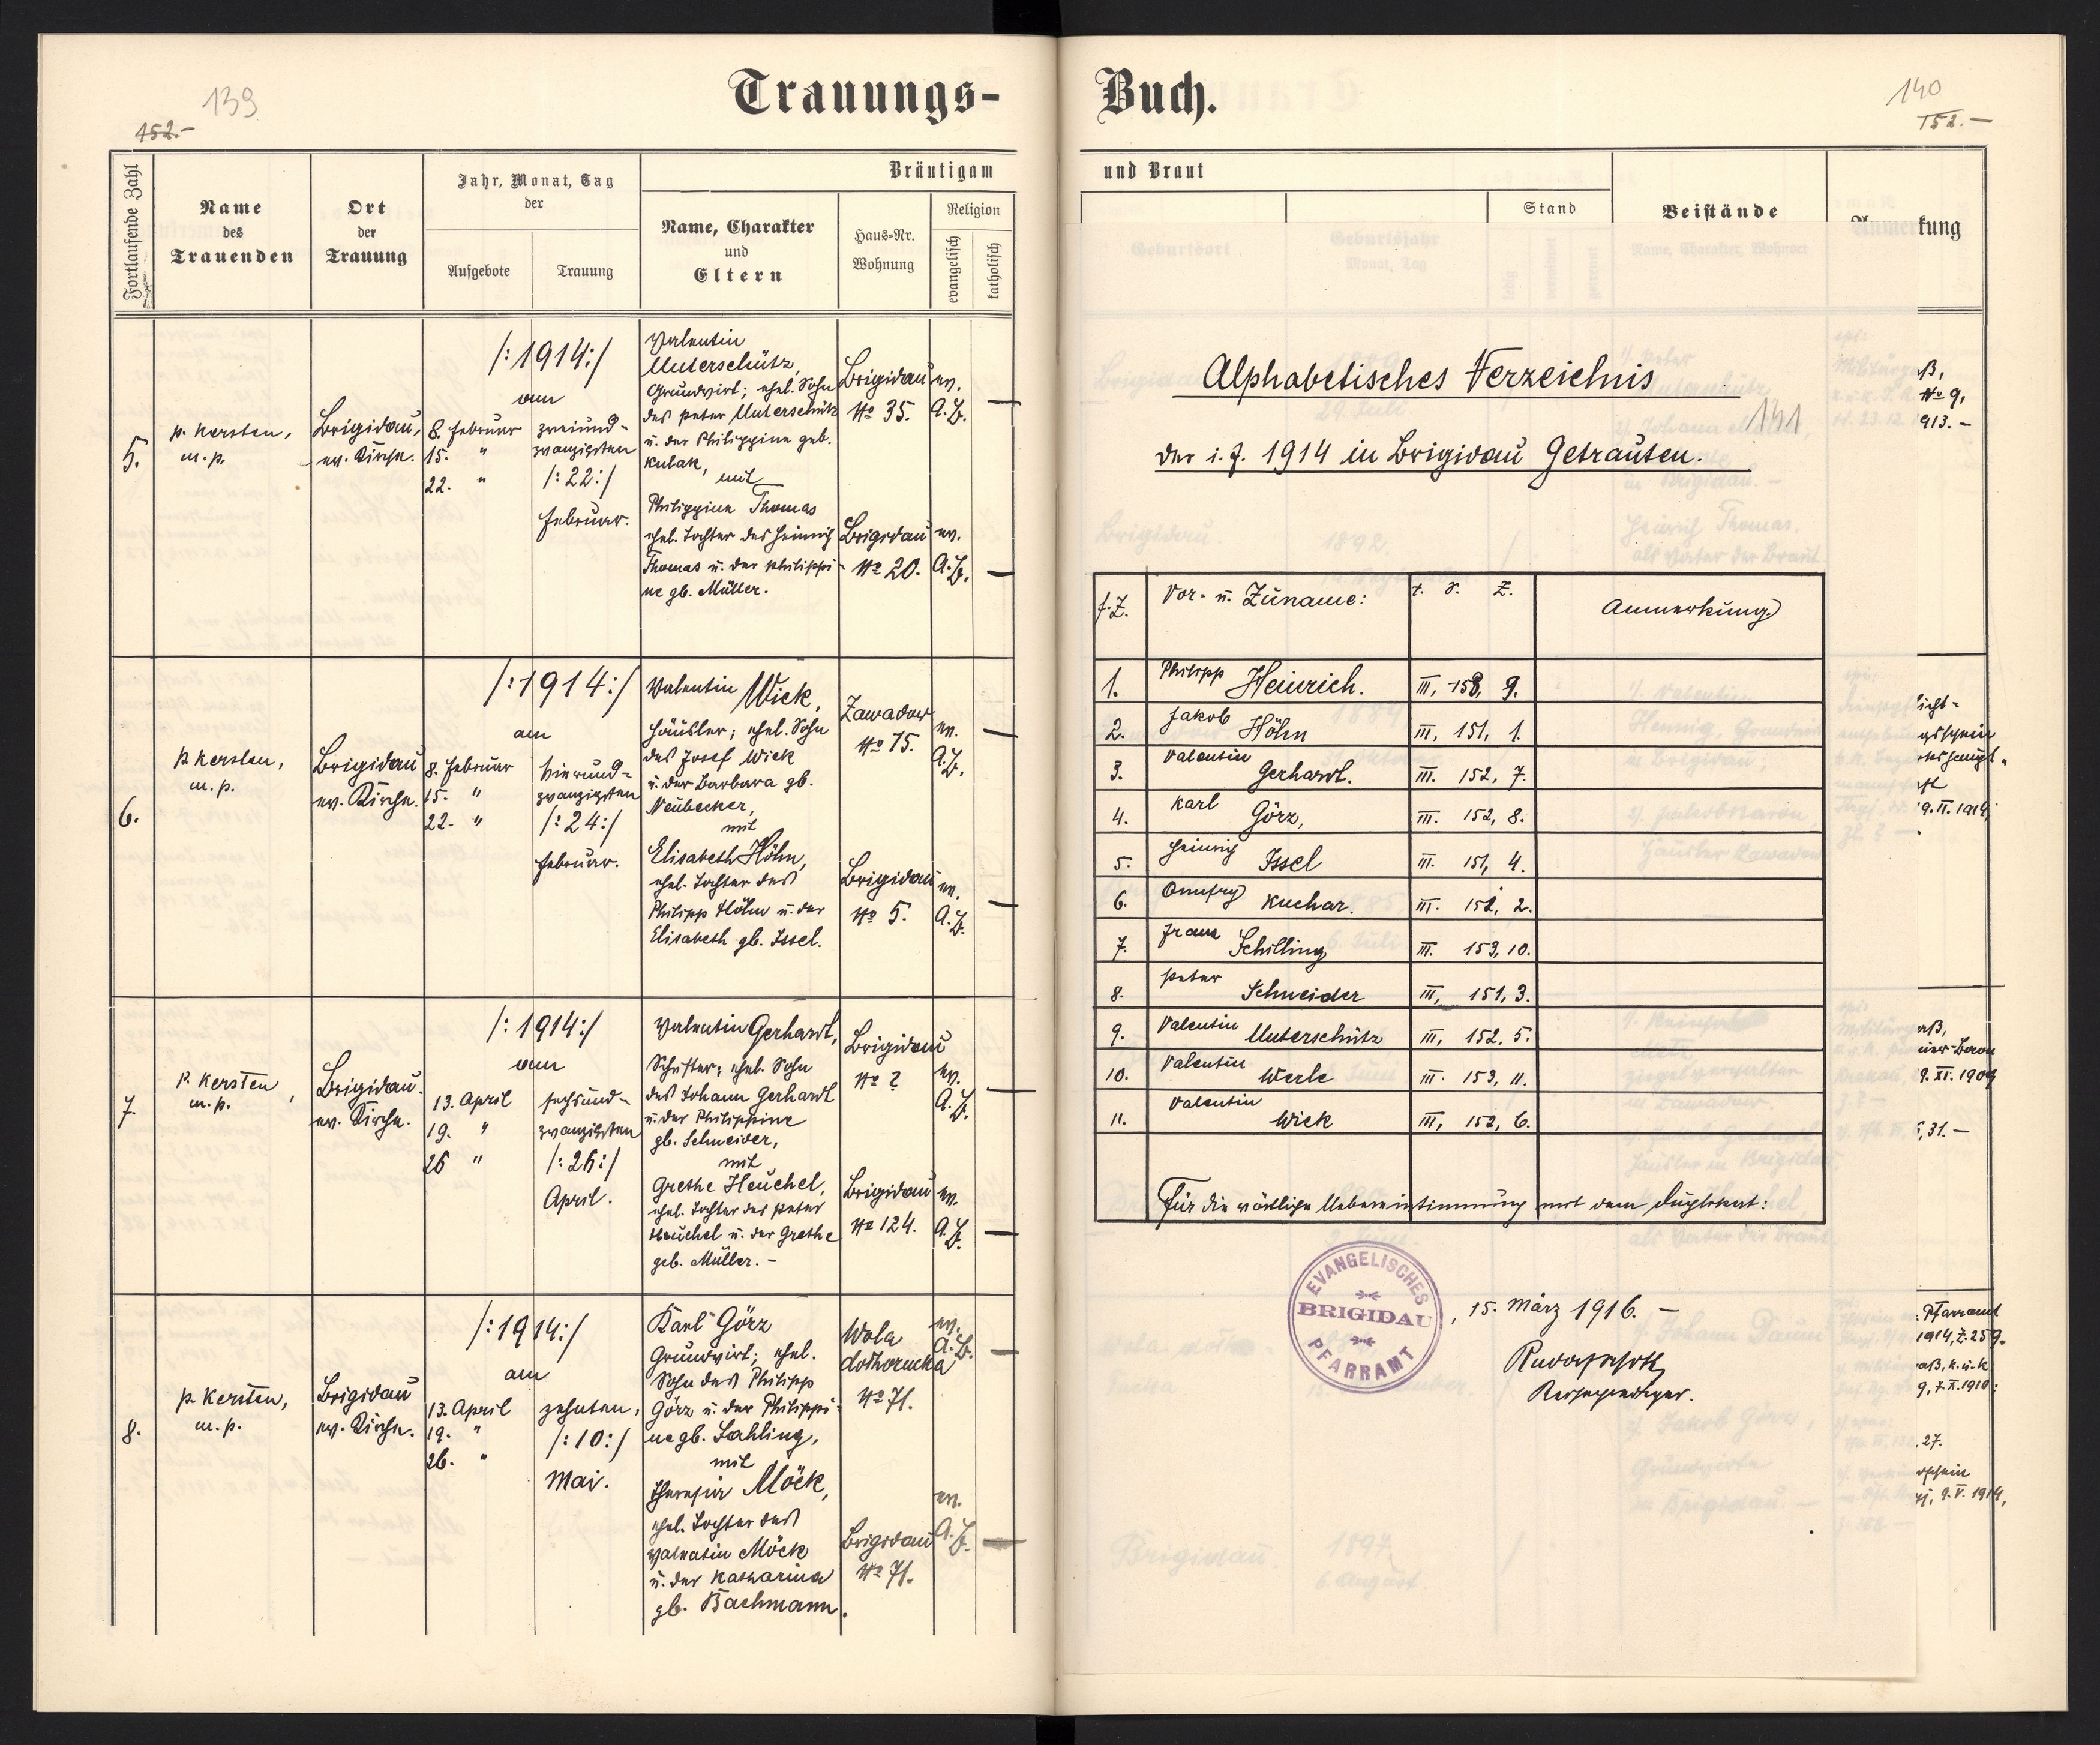 139
152.-
Trauungs-
Fortlaufende Zahl
Name
des
Trauenden
Ort
der
Trauung
Jahr, Monat, Tag
der
Aufgebote
Trauung
Bräutigam
Name, Charakter
und
Eltern
Haus-Nr.
Wohnung
Religion
evangelisch
katholisch
5.
P. Kersten,
m. p.
Brigidau,
ev. Kirche.
/:1914:/
am
8. Februar
15. "
22. "
zweiund-
zwanzigsten
/:22:/
Februar.
Valentin
Unterschütz,
Grundwirt; ehel. Sohn
des Peter Unterschütz
u. der Philippine geb.
Kulak,
mit
Philippine Thomas
ehel. Tochter des Heinrich
Thomas u. der Philippi-
ne gb. Müller.
Brigidau
No 35.
ev.
A.B.
—
Brigidau
No 20.
ev.
A.B.
—
6.
P. Kersten,
m. p.
Brigidau
ev. Kirche.
/:1914:/
am
8. Februar
15. "
22. "
vierund-
zwanzigsten
/:24:/
Februar.
Valentin Wick,
Häusler; ehel. Sohn
des Josef Wick
u. der Barbara gb.
Neubecker,
mit
Elisabeth Höhn,
ehel. Tochter des
Philipp Höhn u. der
Elisabeth gb. Issel.
Zawadow
No 75.
ev.
A.B.
—
Brigidau
No 5.
ev.
A.B.
—
7.
P. Kersten,
m. p.
Brigidau.
ev. Kirche.
/:1914:/
am
13. April
19. "
26 "
sechsund-
zwanzigsten
/:26:/
April.
Valentin Gerhardt,
Schuster; ehel. Sohn
des Johann Gerhardt
u. der Philippine
gb. Schneider,
mit
Grethe Heuchel,
ehel. Tochter des Peter
Heuchel u. der Grethe
geb. Müller. -
Brigidau
No 2
ev.
A.B.
—
Brigidau
No 124.
ev.
A.B.
—
8.
P. Kersten,
m. p.
Brigidau
ev. Kirche.
/:1914:/
am
13. April
19. "
26. "
zehnten,
/:10:/
Mai.
Karl Görz
Grundwirt; ehel.
Sohn des Philipp
Görz u. der Philippi-
ne gb. Sahling,
mit
Theresia Möck,
ehel. Tochter des
Valentin Möck
u. der Katharina
gb. Bachmann.
Wola
dołhołucka
No 71.
ev.
A.B.
—
Brigidau
No 71.
ev.
A.B.
—
Buch.
140
152.-
und Braut
Stand
Beistände
Anmerkung
Alphabetisches Verzeichnis
141
der i. J. 1914 in Brigidau Getrauten.
f. Z.
Vor- u. Zuname:
T. S. Z.
Anmerkung
1. Philipp Heinrich. III, 153, 9.
2. Jakob Höhn III, 151, 1.
3. Valentin Gerhardt. III. 152, 7.
4. Karl Görz, III. 152, 8.
5. Heinrich Issel III. 151, 4.
6. Onufry Kuchar. III. 151, 2.
7. Franz Schilling III. 153, 10.
8. Peter Schneider III, 151, 3.
9. Valentin Unterschütz III, 152, 5.
10. Valentin Werle III. 153, 11.
11. Valentin Wick III, 152, 6.
Für die wörtliche Uebereinstimmung mit dem Duplikat:
EVANGELISCHES
BRIGIDAU
PFARRAMT
, 15. März 1916. -
ß,
No 9,
913. -
icht-
9. II. 1914;
9. XI. 1909
5, 31. —
: Pfarramt
1914, Z. 259.
aß, k. u. k.
9, 7. X. 1910;
, 27.
9. V. 1914,